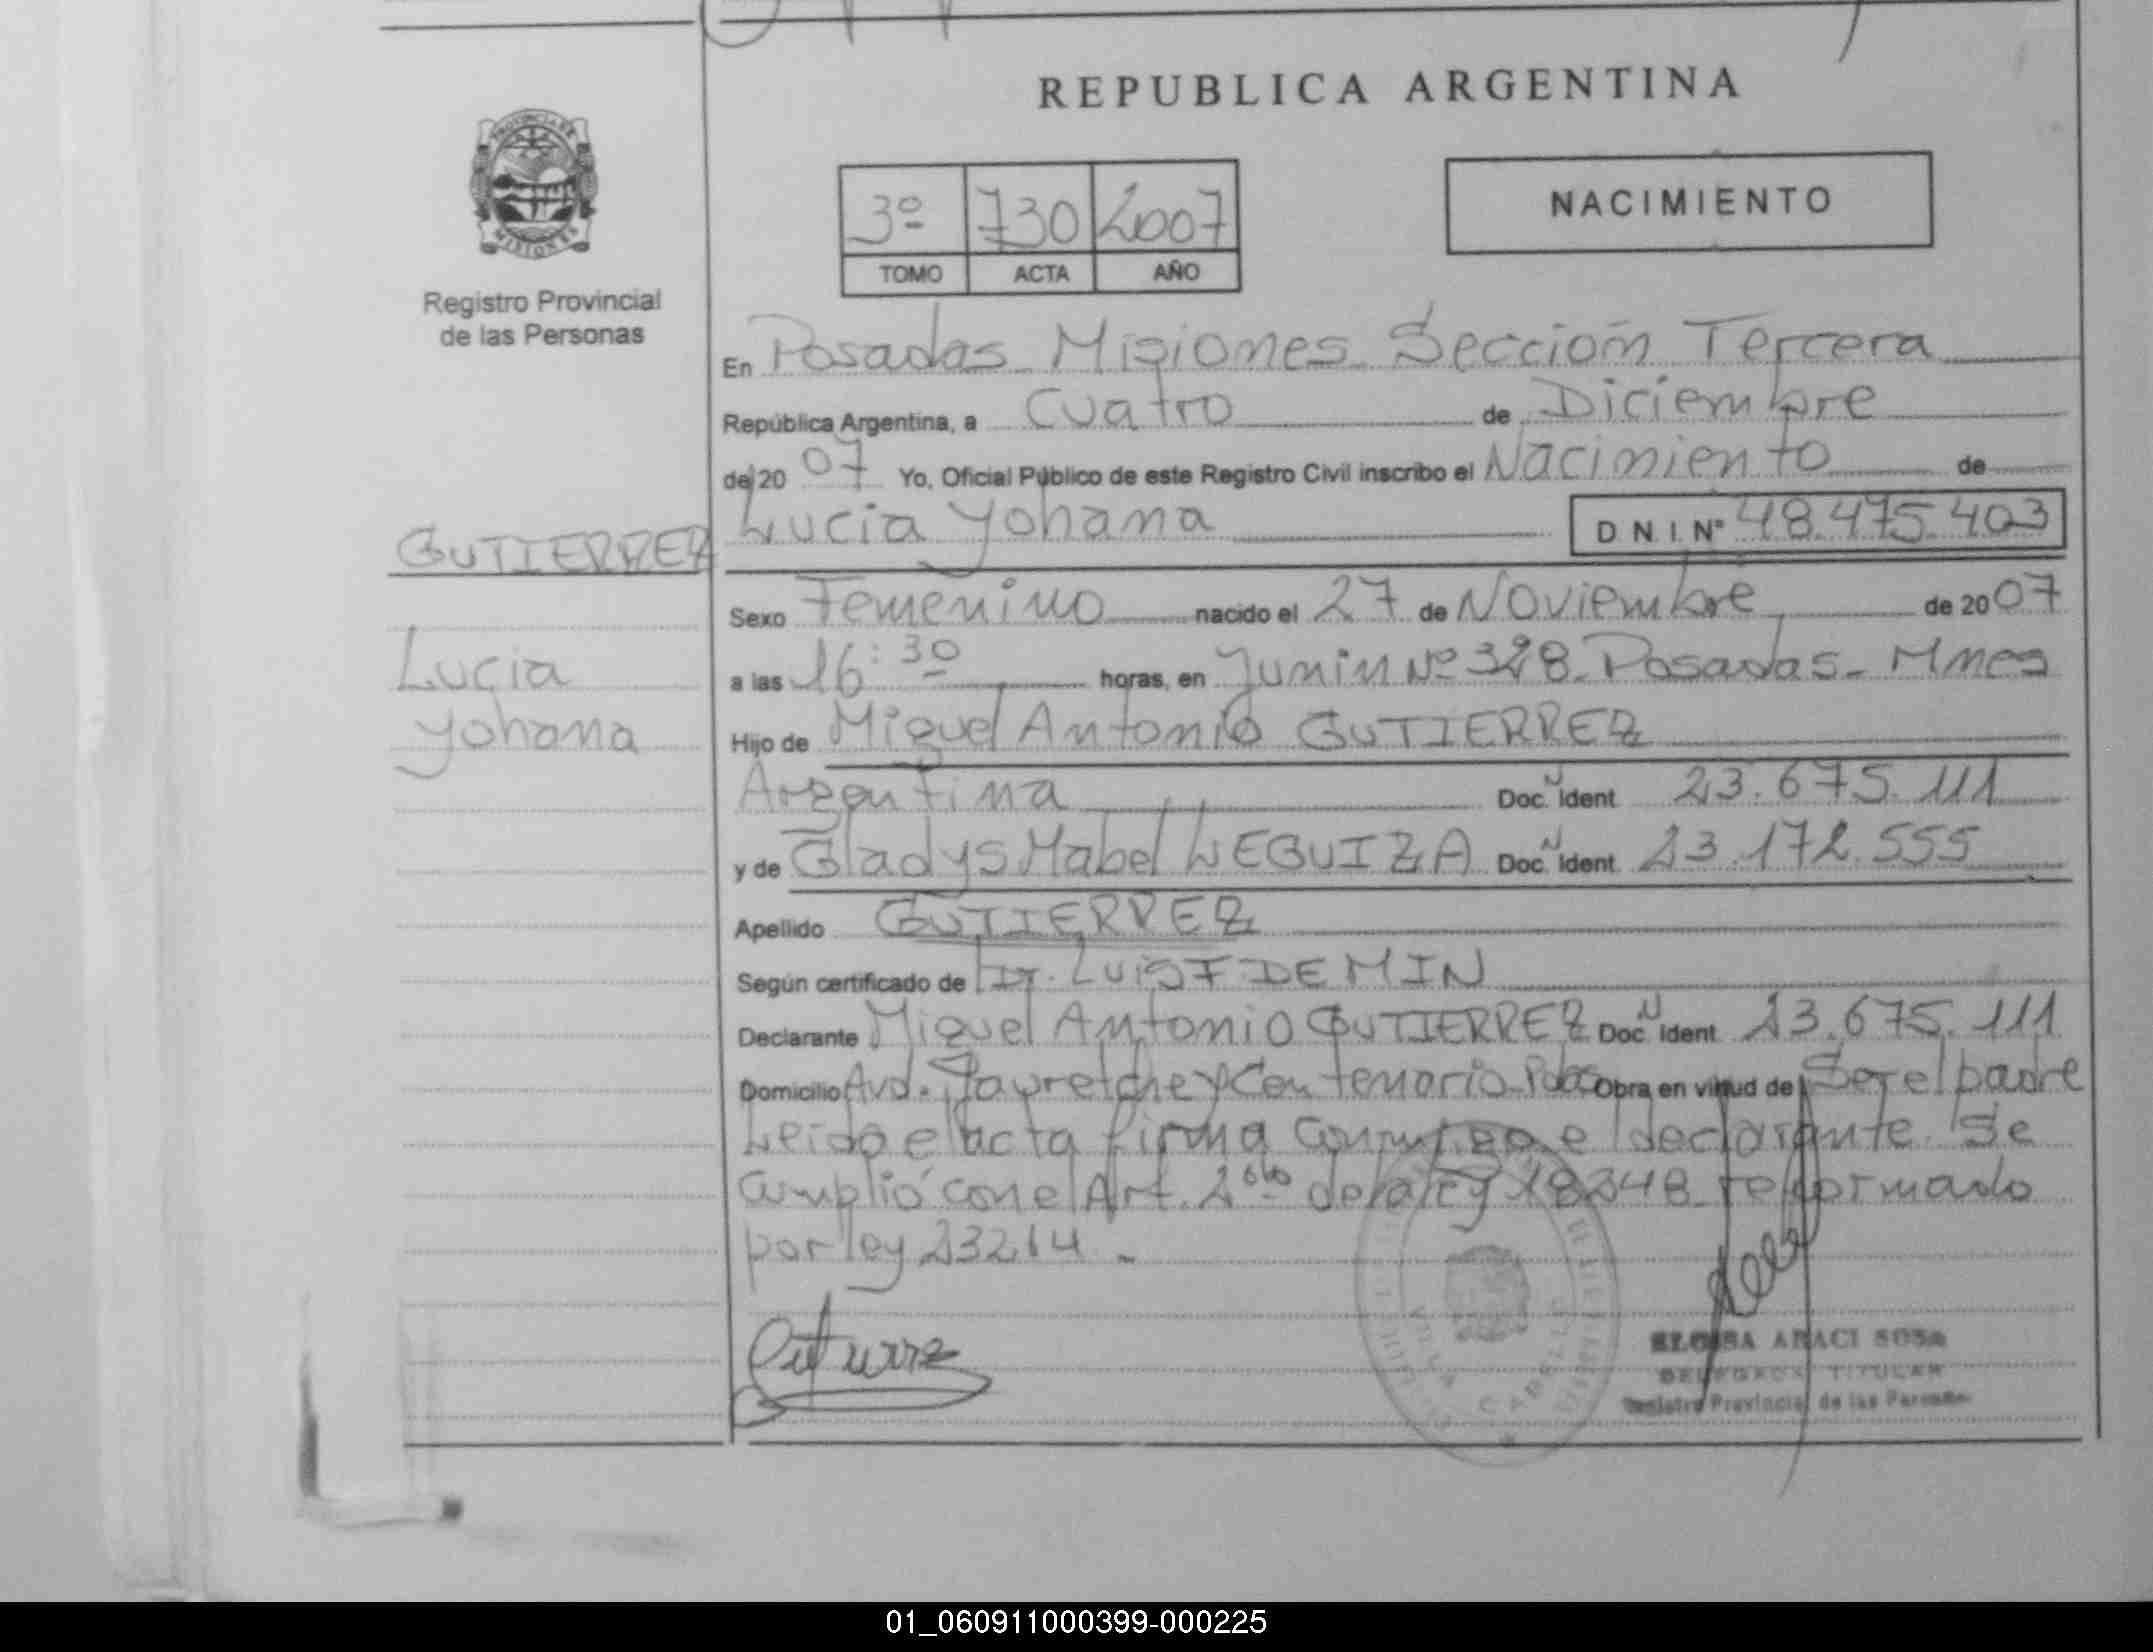 REPUBLICA ARGENTINA
PROVINCIA DE MISIONES
Registro Provincial
de las Personas
3º 730 2007
TOMO ACTA AÑO
NACIMIENTO
En Posadas Misiones Sección Tercera
República Argentina, a Cuatro de Diciembre
de 20 07 Yo, Oficial Público de este Registro Civil inscribo el Nacimiento de
Lucia Yohana D N. I. Nº 48.475.403
GUTIERREZ
Lucia
Yohana
Sexo Femenino nacido el 27 de Noviembre de 20 07
a las 16:30 horas, en Junin Nº 328 Posadas - Mnes
Hijo de Miguel Antonio GUTIERREZ
Argentina Doc. Ident. 23.675.111
y de Gladys Mabel LEGUIZA Doc. Ident. 23.172.555
Apellido GUTIERREZ
Según certificado de Dr. LUIS F DEMIN
Declarante Miguel Antonio GUTIERREZ Doc. Ident. 23.675.111
Domicilio Avd. Jauretche y Centenario Pdas Obra en virtud de Ser el padre
Leida el acta firma conmigo el declarante. Se
cumplió con el Art. 2do de la ley 18248 reformado
por ley 23264 -
VILLA CABELLO
ELOISA ARACI SOSA
DELEGADA TITULAR
Registro Provincial de las Personas
01_060911000399-000225